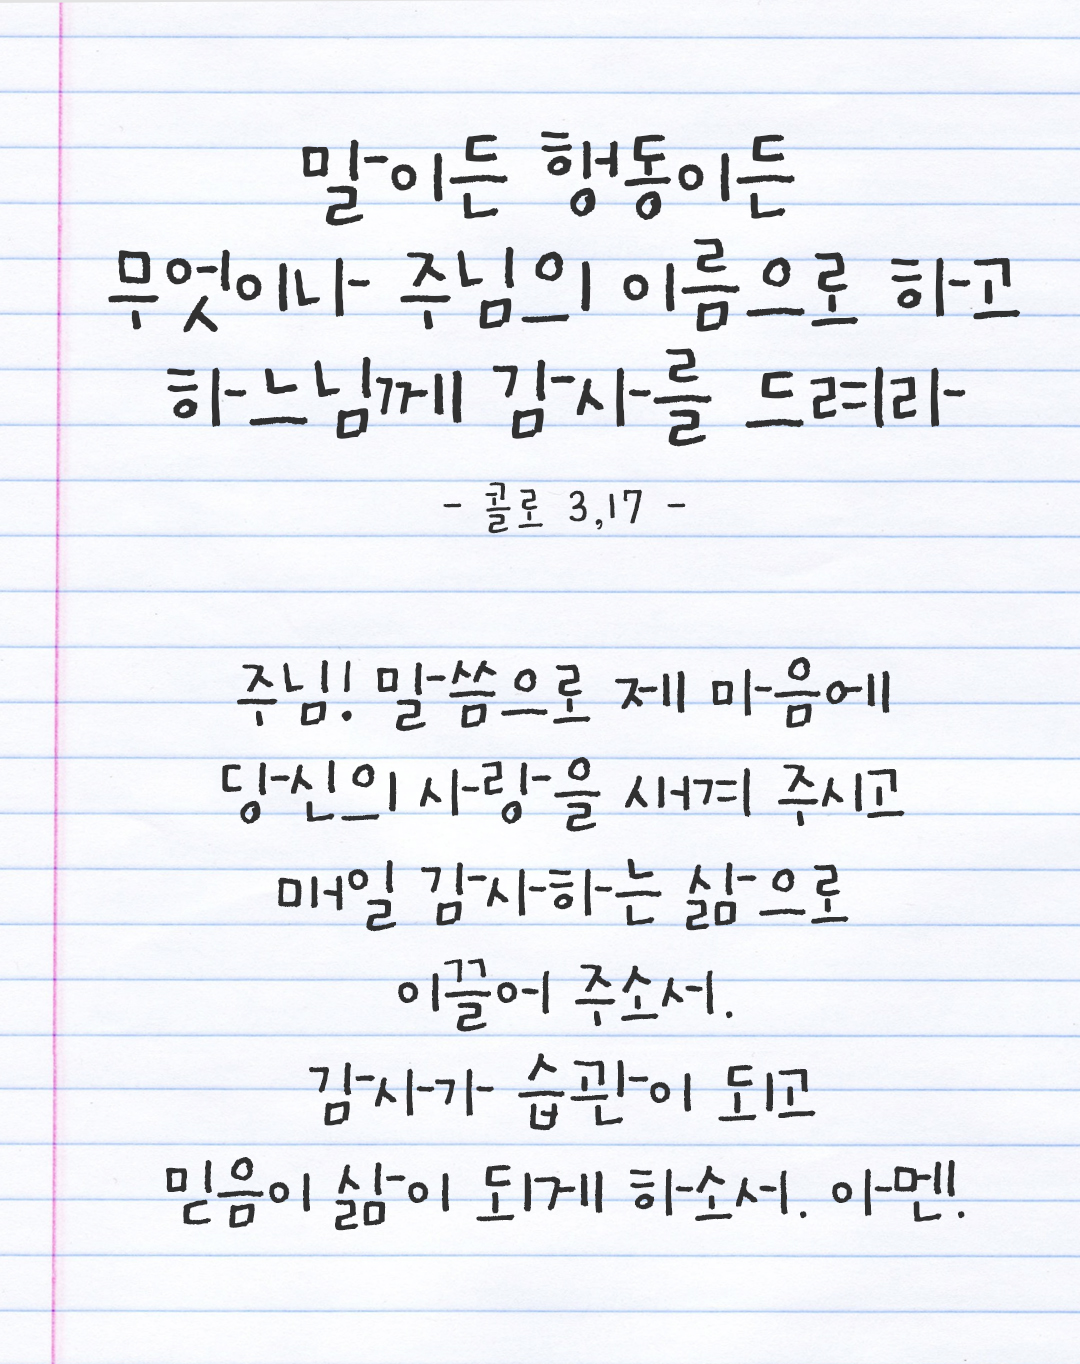 말이든 행동이든
무엇이나 주님의 이름으로 하고
하느님께 감사를 드려라
- 콜로 3,17 -
주님! 말씀으로 제 마음에
당신의 사랑을 새겨 주시고
매일 감사하는 삶으로
이끌어 주소서.
감사가 습관이 되고
믿음이 삶이 되게 하소서. 아멘!